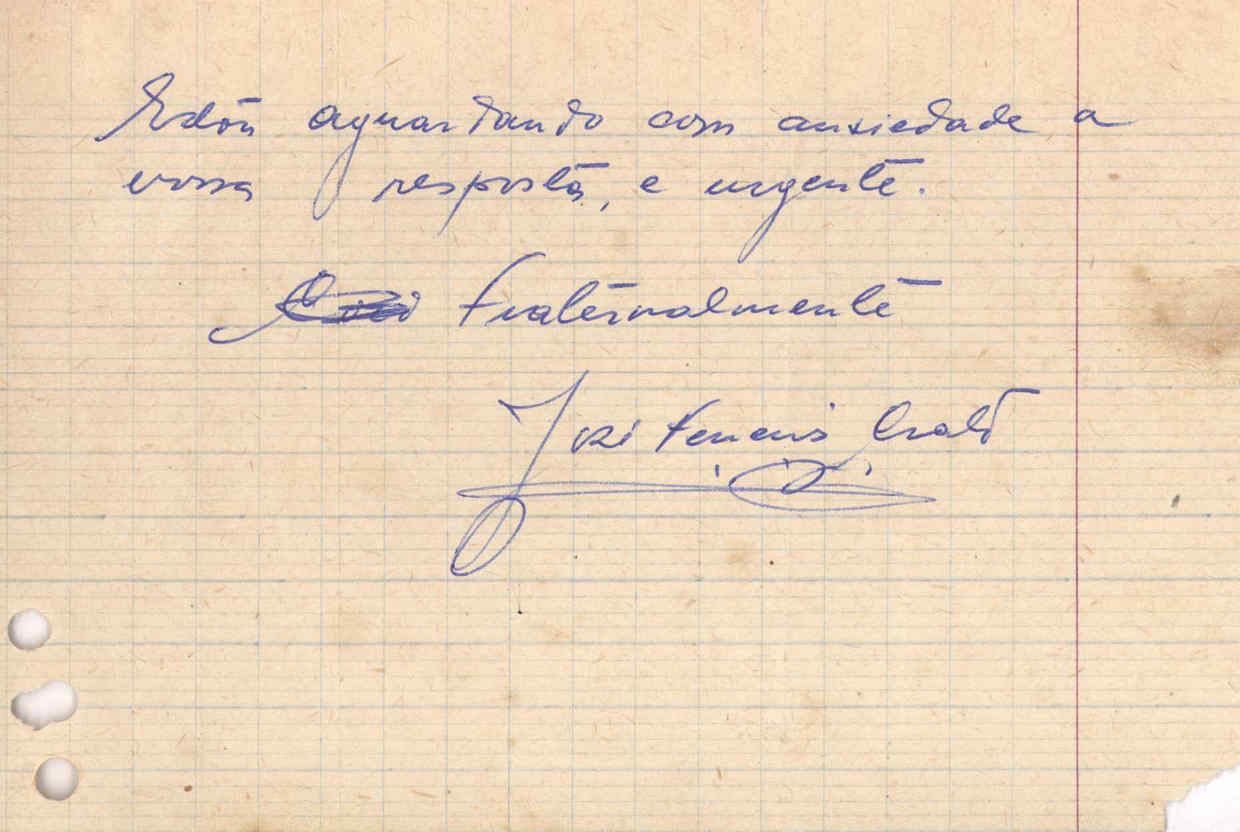 Estou aguardando com ansiedade a
vossa resposta, e urgente.
Fraternalmente
José